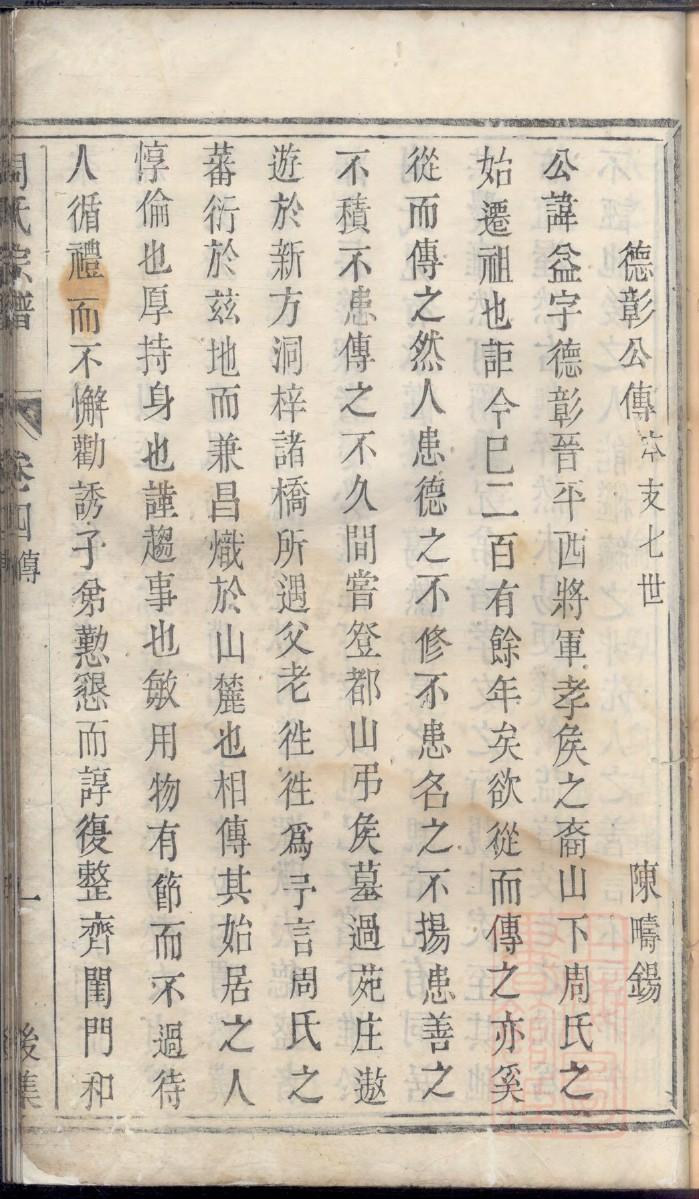 德彰公傳 本支七世 陳疇錫
公諱益字德彰晉平西將軍孝矦之裔山下周氏之
始遷祖也詎今巳二百有餘年矣欲從而傳之亦奚
從而傳之然人患德之不修不患名之不揚患善之
不積不患傳之不久間嘗登都山弔矦墓過苑庄遨
遊於新方洞梓諸橋所遇父老徃徃爲予言周氏之
蕃衍於茲地而兼昌熾於山麓也相傳其始居之人
惇倫也厚持身也謹趨事也敏用物有節而不過待
人循禮而不懈勸誘子弟懃懇而諄復整齊閨門和
周氏宗譜 卷四 傳 一 後集